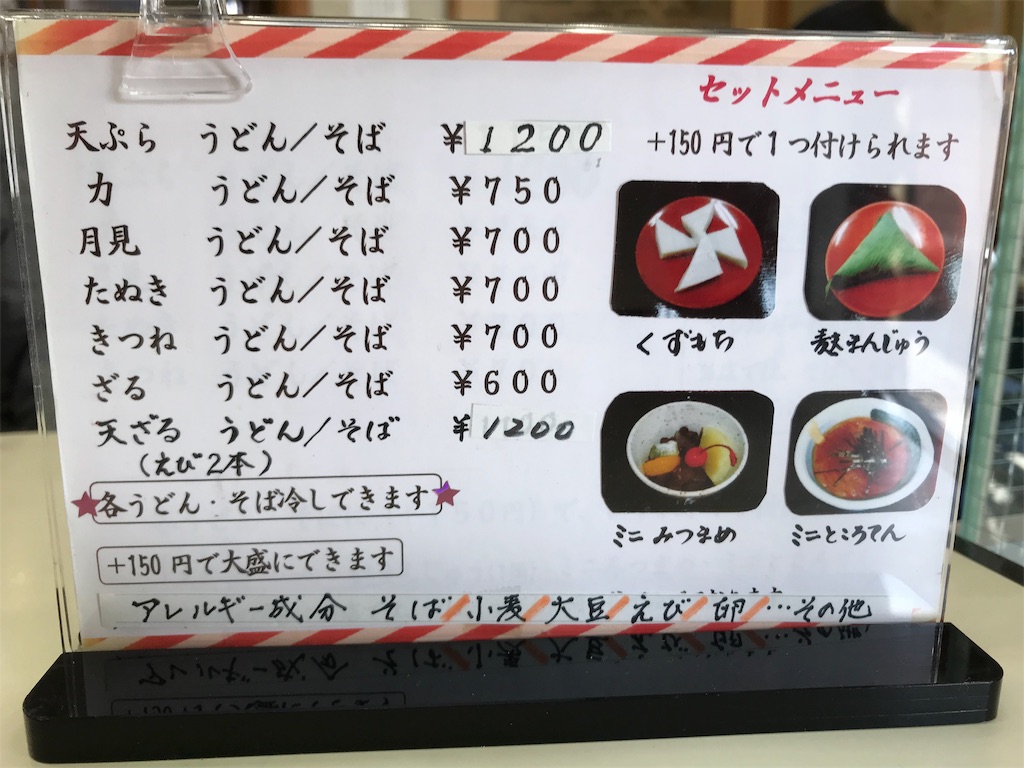 天ぷら うどん/そば ¥1200
力 うどん/そば ¥750
月見 うどん/そば ¥700
たぬき うどん/そば ¥700
きつね うどん/そば ¥700
ざる うどん/そば ¥600
天ざる うどん/そば ¥1200
(えび2本)
各うどん・そば冷しできます
+150円で大盛にできます
セットメニュー
+150円で1つ付けられます
くずもち
麩まんじゅう
ミニみつまめ
ミニところてん
アレルギー成分 そば/小麦/大豆/えび/卵/…その他